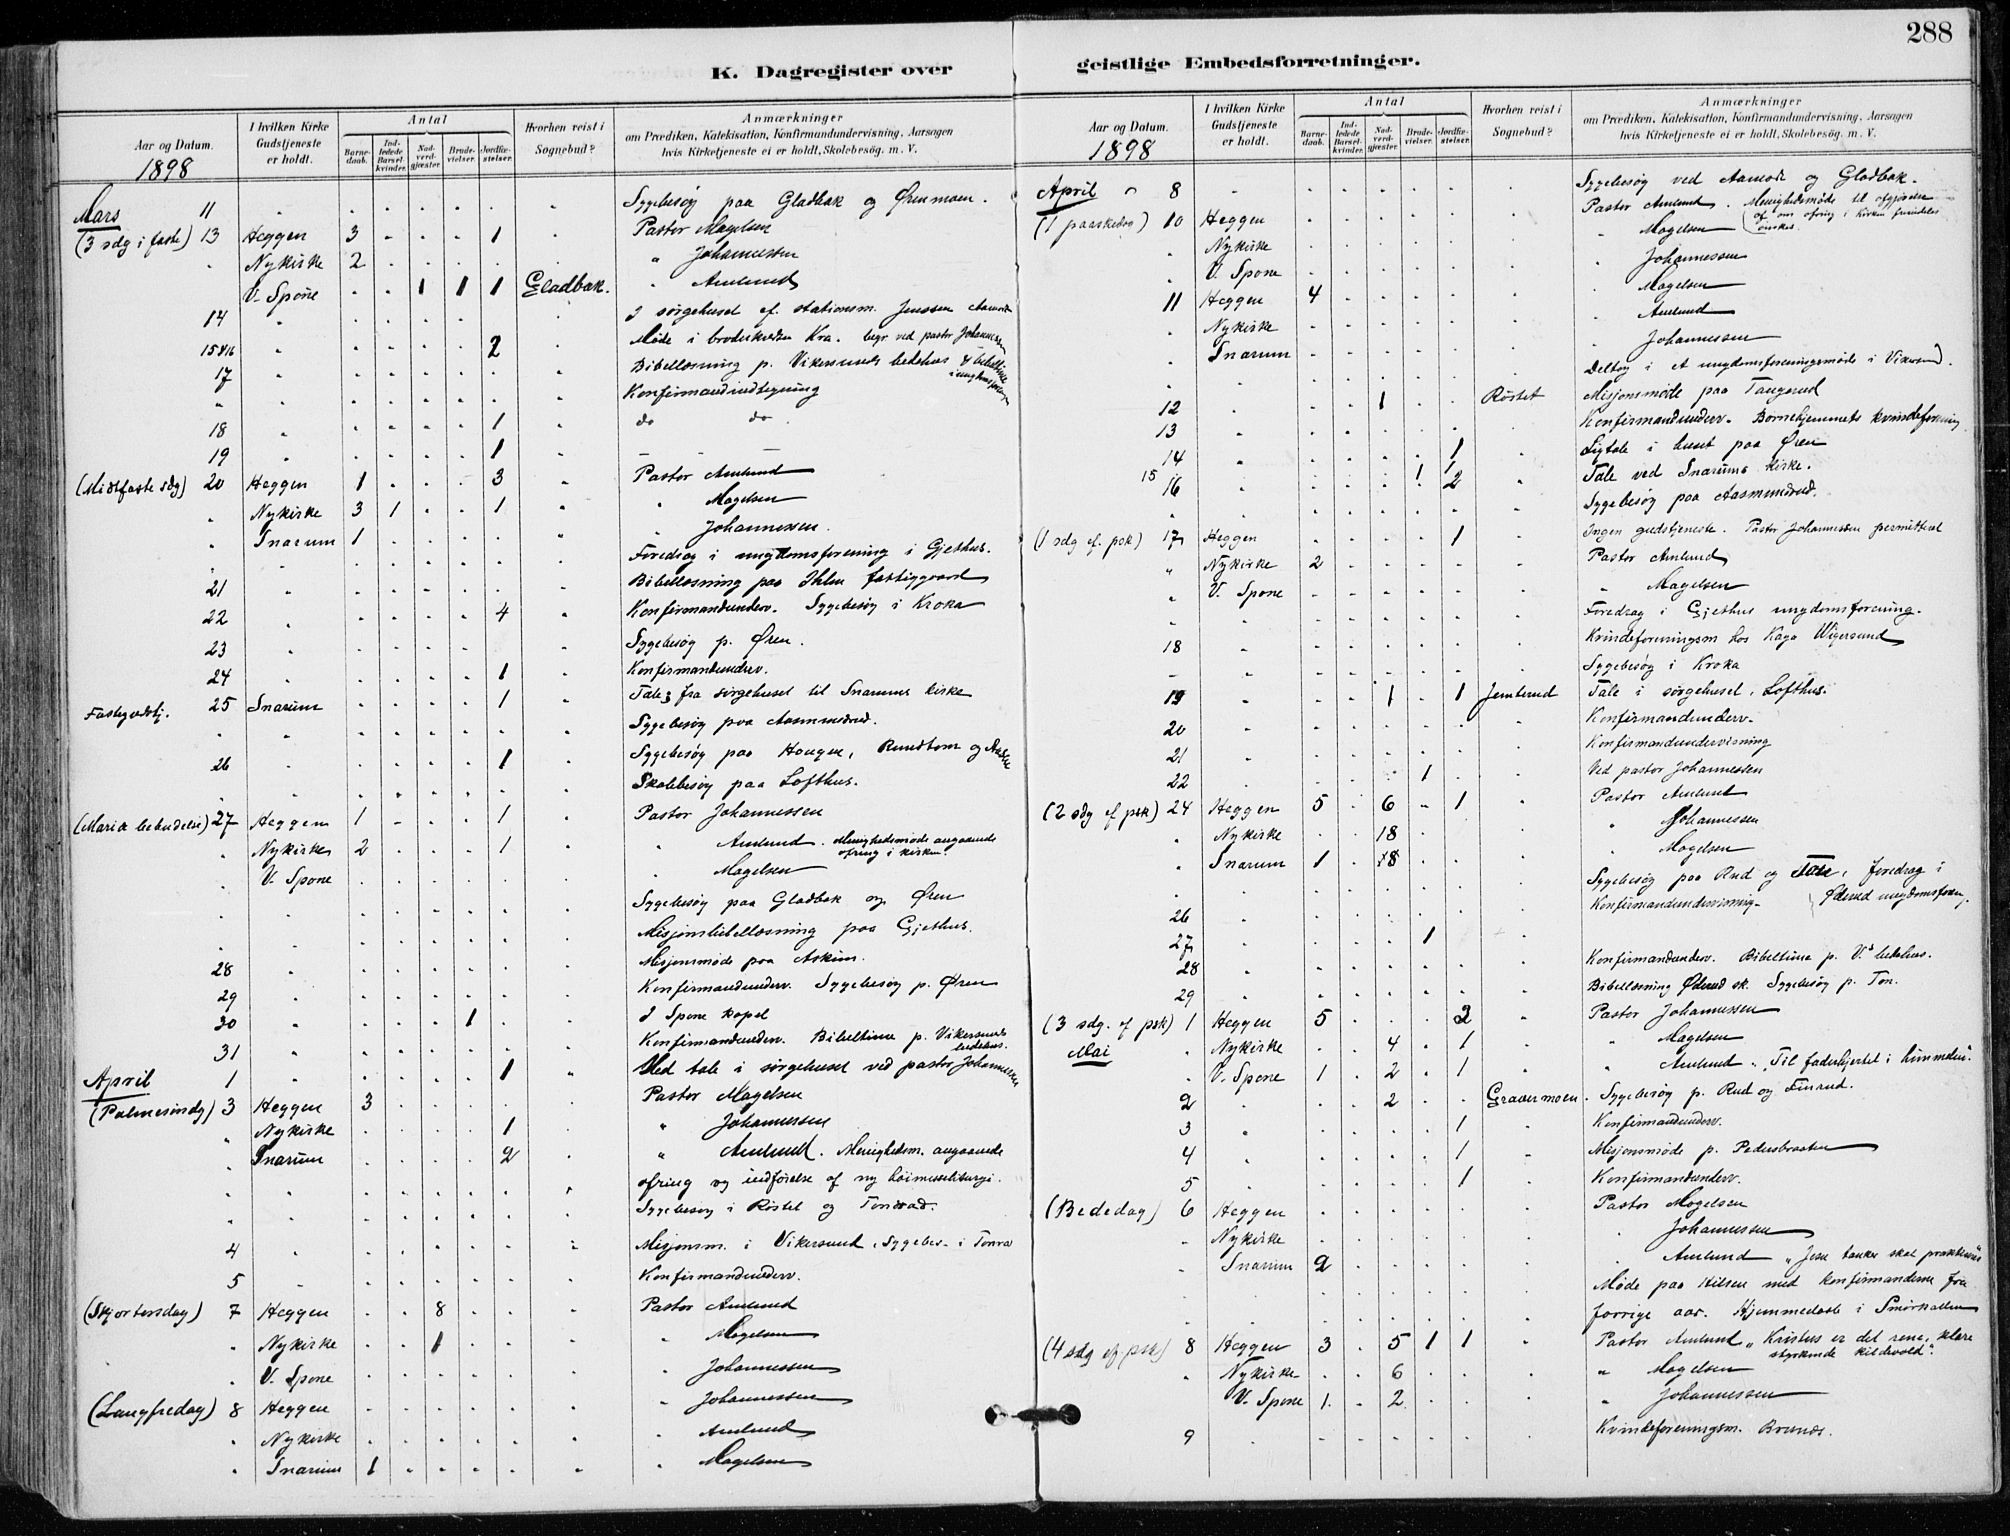 288
K. Dagregister over geistlige Embedsforretninger.
Aar og Datum.
1898
I hvilken Kirke Gudstjeneste er holdt.
Antal
Barnedaab.
Indledede Barselkvinder.
Nadverdgjæster.
Brudevielser.
Jordfæstelser.
Hvorhen reist i Sognebud?
Anmærkninger
om Prædiken, Katekisation, Konfirmandundervisning, Aarsagen
hvis Kirketjeneste ei er holdt, Skolebesøg. m. V.
Mars 11 Sygebesøg paa Gladbak og Ørenmoen.
(3 sdg i faste) 13 Heggen 3 . . . 1 Pastor Magelsen
Nykirke 2 . . . . " Johannessen
V. Spone . . 1 1 1 Gladbak. " Amlund
14 I sørgehuset ef. stationsm. Jenssen Aamodt
15 & 16 2 Møde i broderkredsen Kra. begr ved pastor Johannessen
17 Bibellæsning p. Vikersunds bedehus
" Konfirmandindtegning
18 1 do do
19 1 – –
(Midtfaste sdg) 20 Heggen 1 . . . 3 Pastor Amlund
" Nykirke 3 1 . . 1 " Magelsen
" Snarum 1 . . . . " Johannessen.
Foredrag i ungdomsforening i Gjethus.
21 Bibellæsning paa Ihlen fattiggaard
22 4 Konfirmandunderv. Sygebesøg i Kroka
23 Sygebesøg p. Øren.
24 1 Konfirmandunderv.
Fastegudstj. 25 Snarum 1 Tale fra sørgehuset til Snarums kirke
Sygebesøg paa Aasmundrud.
26 1 Sygebesøg paa Haugen, Rundtom og
Skolebesøg paa Lofthus.
(Mariæ bebudelse) 27 Heggen 1 . . . 1 Pastor Johannessen
" Nykirke 2 . . . 1 " Amlund. Menighedsmøde angaaende
ofring i kirken.
" V. Spone . . . . . " Magelsen
Sygebesøg paa Gladbak og Øren
Misjonsbibellæsning paa Gjethus.
28 Misjonsmøde paa Askim.
29 Konfirmandunderv. Sygebesøg p. Øren
30 1 I Spone kapel
31 Konfirmandunderv. Bibeltime p. Vikersunds
bedehus.
April 1 1 Ved tale i sørgehuset ved pastor Johannessen
(Palmesøndg) 3 Heggen 3 . . . . Pastor Magelsen
" Nykirke . . . . 1 " Johannessen
" Snarum . . . . 2 " Amlund. Menighedsm. angaaende
ofring og indførelse af ny høimesseliturgi.
Sygebesøg i Røstet og
4 Misjonsm. i Vikersund. Sygebes. i
5 Konfirmandunderv.
(Skjærtorsdag) 7 Heggen . . 8 . . Pastor Amlund
" Nykirke . . 1 . . " Magelsen
" V. Spone . . . . . " Johannessen
(Langfredag) 8 Heggen . . . . . " Johannessen
" Nykirke . . . . . " Amlund
" Snarum 1 . . . . " Magelsen
Aar og Datum.
1898
I hvilken Kirke Gudstjeneste er holdt.
Antal
Barnedaab.
Indledede Barselkvinder.
Nadverdgjæster.
Brudevielser.
Jordfæstelser.
Hvorhen reist i Sognebud?
Anmærkninger
om Prædiken, Katekisation, Konfirmandundervisning, Aarsagen
hvis Kirketjeneste ei er holdt, Skolebesøg. m. V.
April 8 Sygebesøg ved Aamodt og Gladbak.
(1 paaskedag) 10 Heggen . . . . . Pastor Amlund. Menighedsmøde til afgjørelse
af om ofring i kirken fremdeles
ønskes.
" Nykirke . . . . . " Magelsen
" V. Spone . . . . . " Johannessen
11 Heggen 4 . . . . " Magelsen
" Nykirke . . . . . " Amlund
" Snarum . . . . . " Johannessen
Deltog i et ungdomsforeningsmøde i Vikersund.
12 1 Røstet Misjonsmøde paa Tangerud
13 Konfirmandunderv. Børnehjemmets kvindeforening
14 1 Ligtale i huset paa Øren
15 1 1
16 2 Tale ved Snarums kirke.
Sygebesøg paa Aasmundrud.
(1 sdg ef. psk) 17 Heggen . . . . 1 Ingen gudstjeneste. Pastor Johannessen permitteret
" Nykirke 2 . . . . Pastor Amlund
" V. Spone . . . . . " Magelsen
Foredrag i Gjethus ungdomsforening.
18 Kvindeforeningsm hos Kaja
Sygebesøg i Kroka
19 1 1 Jemterud Tale i sørgehuset, Lofthus.
20 Konfirmandunderv.
21 Konfirmandundervisning
22 1 Ved pastor Johannessen
(2 sdg ef psk) 24 Heggen 5 . 6 . 1 Pastor Amlund
" Nykirke . . 18 . . " Johannessen
" Snarum 1 . 8 . . " Magelsen
Sygebesøg paa Rud og , foredrag i
26 Konfirmandundervisning. Øderud ungdomsforen.
27 1
28 Konfirmandunderv. Bibeltime p. V.s bedehus.
29 Bibellæsning Øderud sk. Sygebesøg p.
(3 sdg. ef psk) 1 Heggen 5 . . . 2 Pastor Johannessen
Mai " Nykirke . . 4 . 1 " Magelsen
" V. Spone 1 . 2 . 1 " Amlund. „Til faderhjertet i himmelen".
2 2 Gravermoen. Sygebesøg p. Rud og Finrud.
3 1 Konfirmandunderv.
4 1 Misjonsmøde p. Pedersbraaten
5 1 Konfirmandunderv.
(Bededag) 6 Heggen . . . . . Pastor Magelsen
" Nykirke . . . . . " Johannessen
" Snarum 2 . . . . " Amlund „Jesu tanker skal
Møde paa med konfirmanderne fra
forrige aar. Hjemmedaab i
(4 sdg ef. psk) 8 Heggen 3 . 5 1 1 Pastor Amlund „Kristus er det rene, klare
styrkende kildevæld".
" Nykirke . . 6 . . " Magelsen
" V. Spone 1 . 2 . . " Johannessen
9 Kvindeforeningsm.